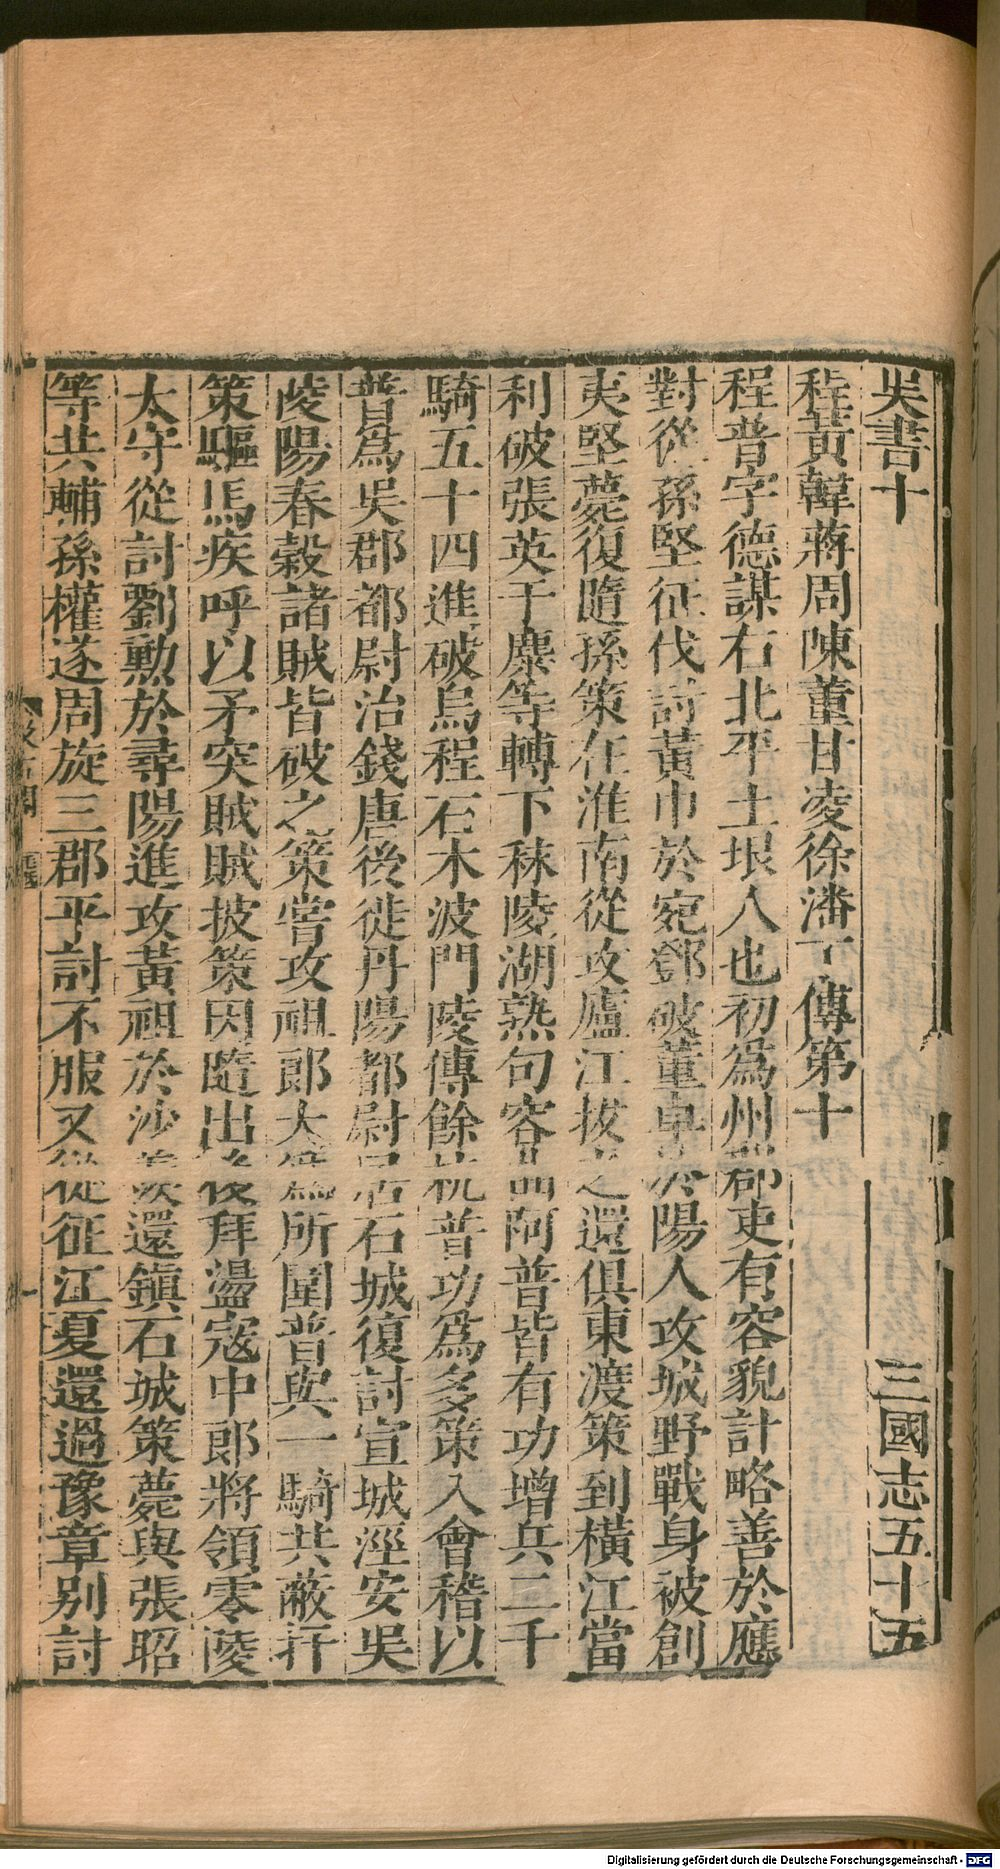 吳書十　三國志五十五
程黃韓蔣周陳董甘凌徐潘丁傳第十
程普字德謀右北平土垠人也初爲州郡吏有容貌計略善於應
對從孫堅征伐討黃巾於宛鄧破董卓於陽人攻城野戰身被創
夷堅薨復隨孫策在淮南從攻廬江拔之還俱東渡策到橫江當
利破張英于麋等轉下秣陵湖熟句容曲阿普皆有功增兵二千
騎五十四進破烏程石木波門陵傳餘杭普功爲多策入會稽以
普爲吳郡都尉治錢唐後徙丹陽都尉居石城復討宣城涇安吳
陵陽春穀諸賊皆破之策嘗攻祖郎大爲所圍普與一騎共蔽扞
策驅馬疾呼以矛突賊賊披策因隨出後拜盪寇中郎將領零陵
太守從討劉勳於尋陽進攻黃祖於沙羡還鎮石城策薨與張昭
等共輔孫權遂周旋三郡平討不服又從征江夏還過豫章別討
Digitalisierung gefördert durch die Deutsche Forschungsgemeinschaft - DFG